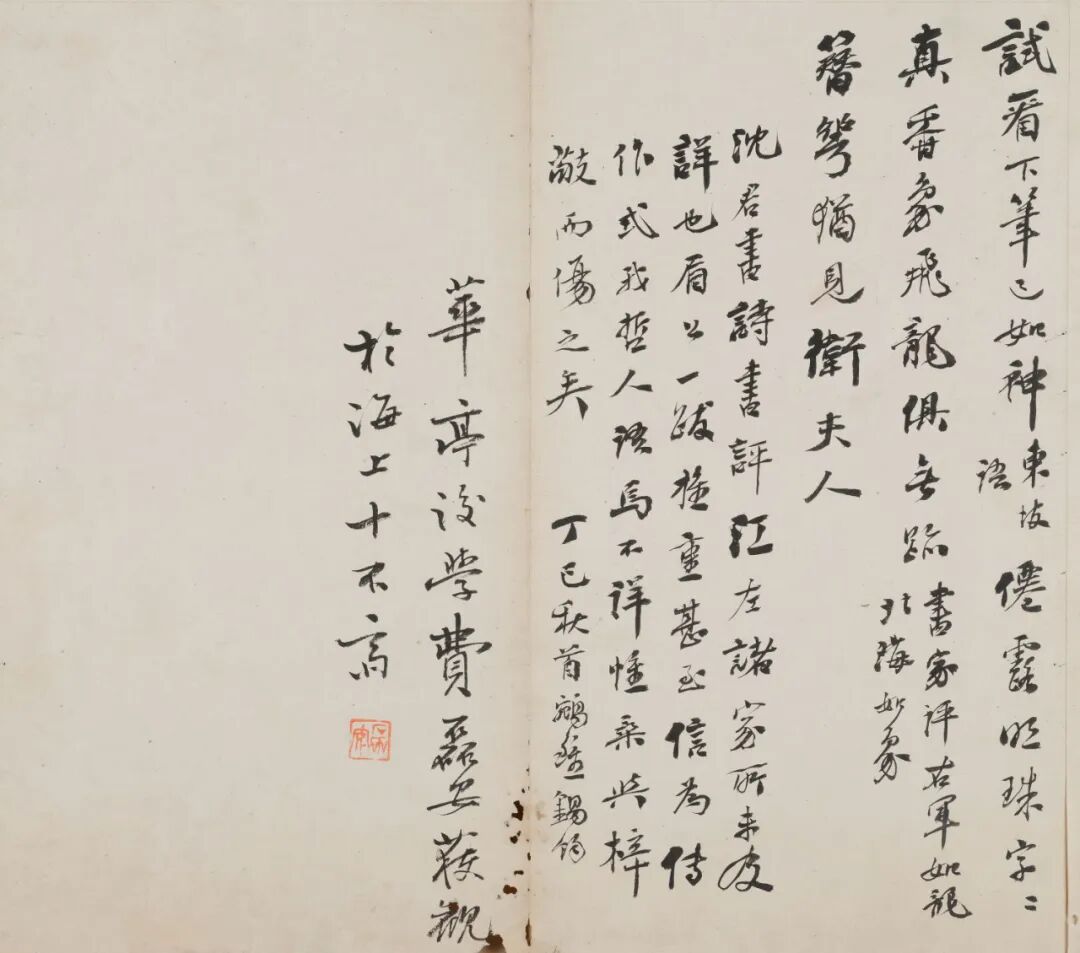 試看下筆已如神東坡語僊露明珠字〻
真香象飛龍俱無跡書家評右軍如龍北海如象
簪筆猶見衛夫人
沈君書詩書評江左諸家所未及
詳也眉公一跋推重甚至信為傳
作或我哲人語焉不詳惟桑與梓
敬而傷之矣 丁巳秋首 錫
華亭後學費磊安獲觀
於海上十不齋